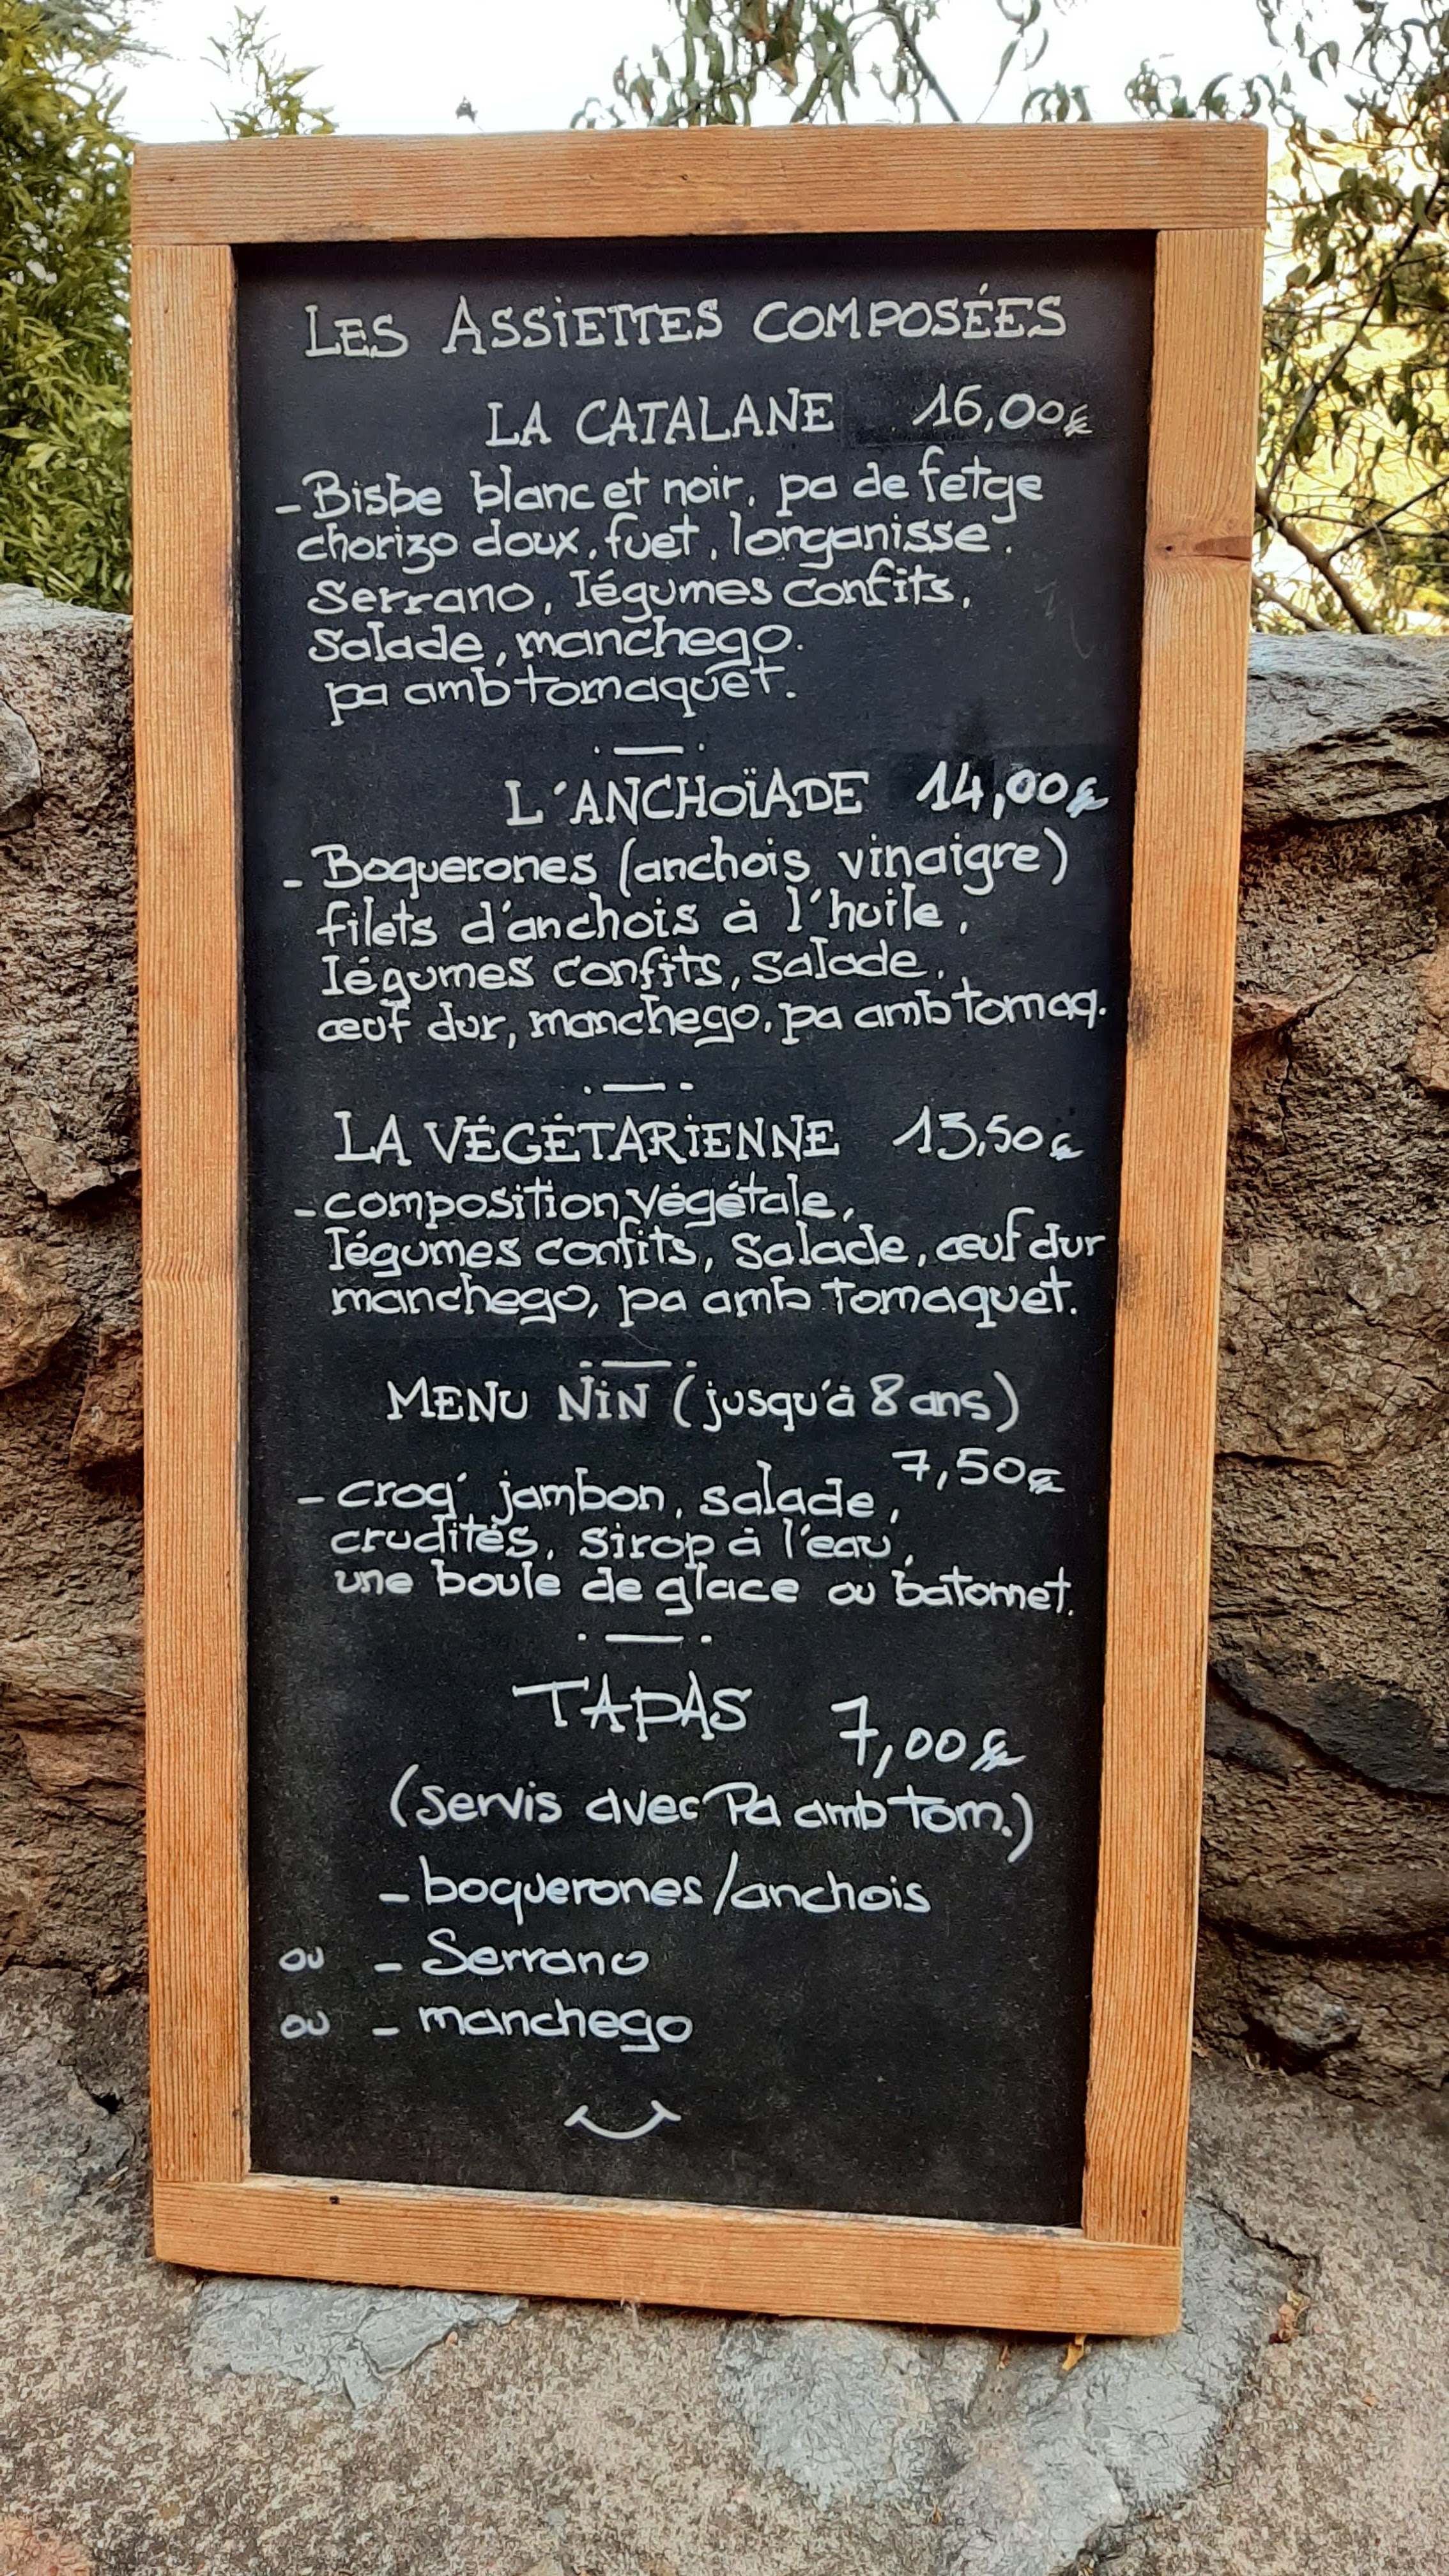 LES ASSIETTES COMPOSÉES
LA CATALANE 16,00€
- Bisbe blanc et noir, pa de fetge
chorizo doux, fuet, longanisse.
Serrano, légumes confits,
Salade, manchego.
pa amb tomaquet.
L'ANCHOÏADE 14,00€
- Boquerones (anchois vinaigre)
filets d'anchois à l'huile,
légumes confits, salade,
œuf dur, manchego, pa amb tomaq.
LA VÉGÉTARIENNE 13,50€
- composition végétale,
légumes confits, Salade, œuf dur
manchego, pa amb tomaquet.
MENU NIN (jusqu'à 8 ans)
7,50€
- croq' jambon, salade,
crudités, sirop à l'eau,
une boule de glace ou batomnet.
TAPAS 7,00€
(servis avec Pa amb tom.)
- boquerones/anchois
ou - Serrano
ou - manchego